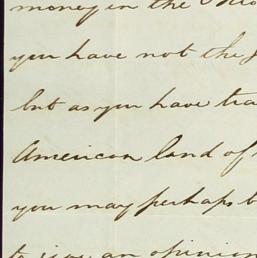 money in the
you have not the
but as you have tra
American land of
you may perhaps b
to give an opinion